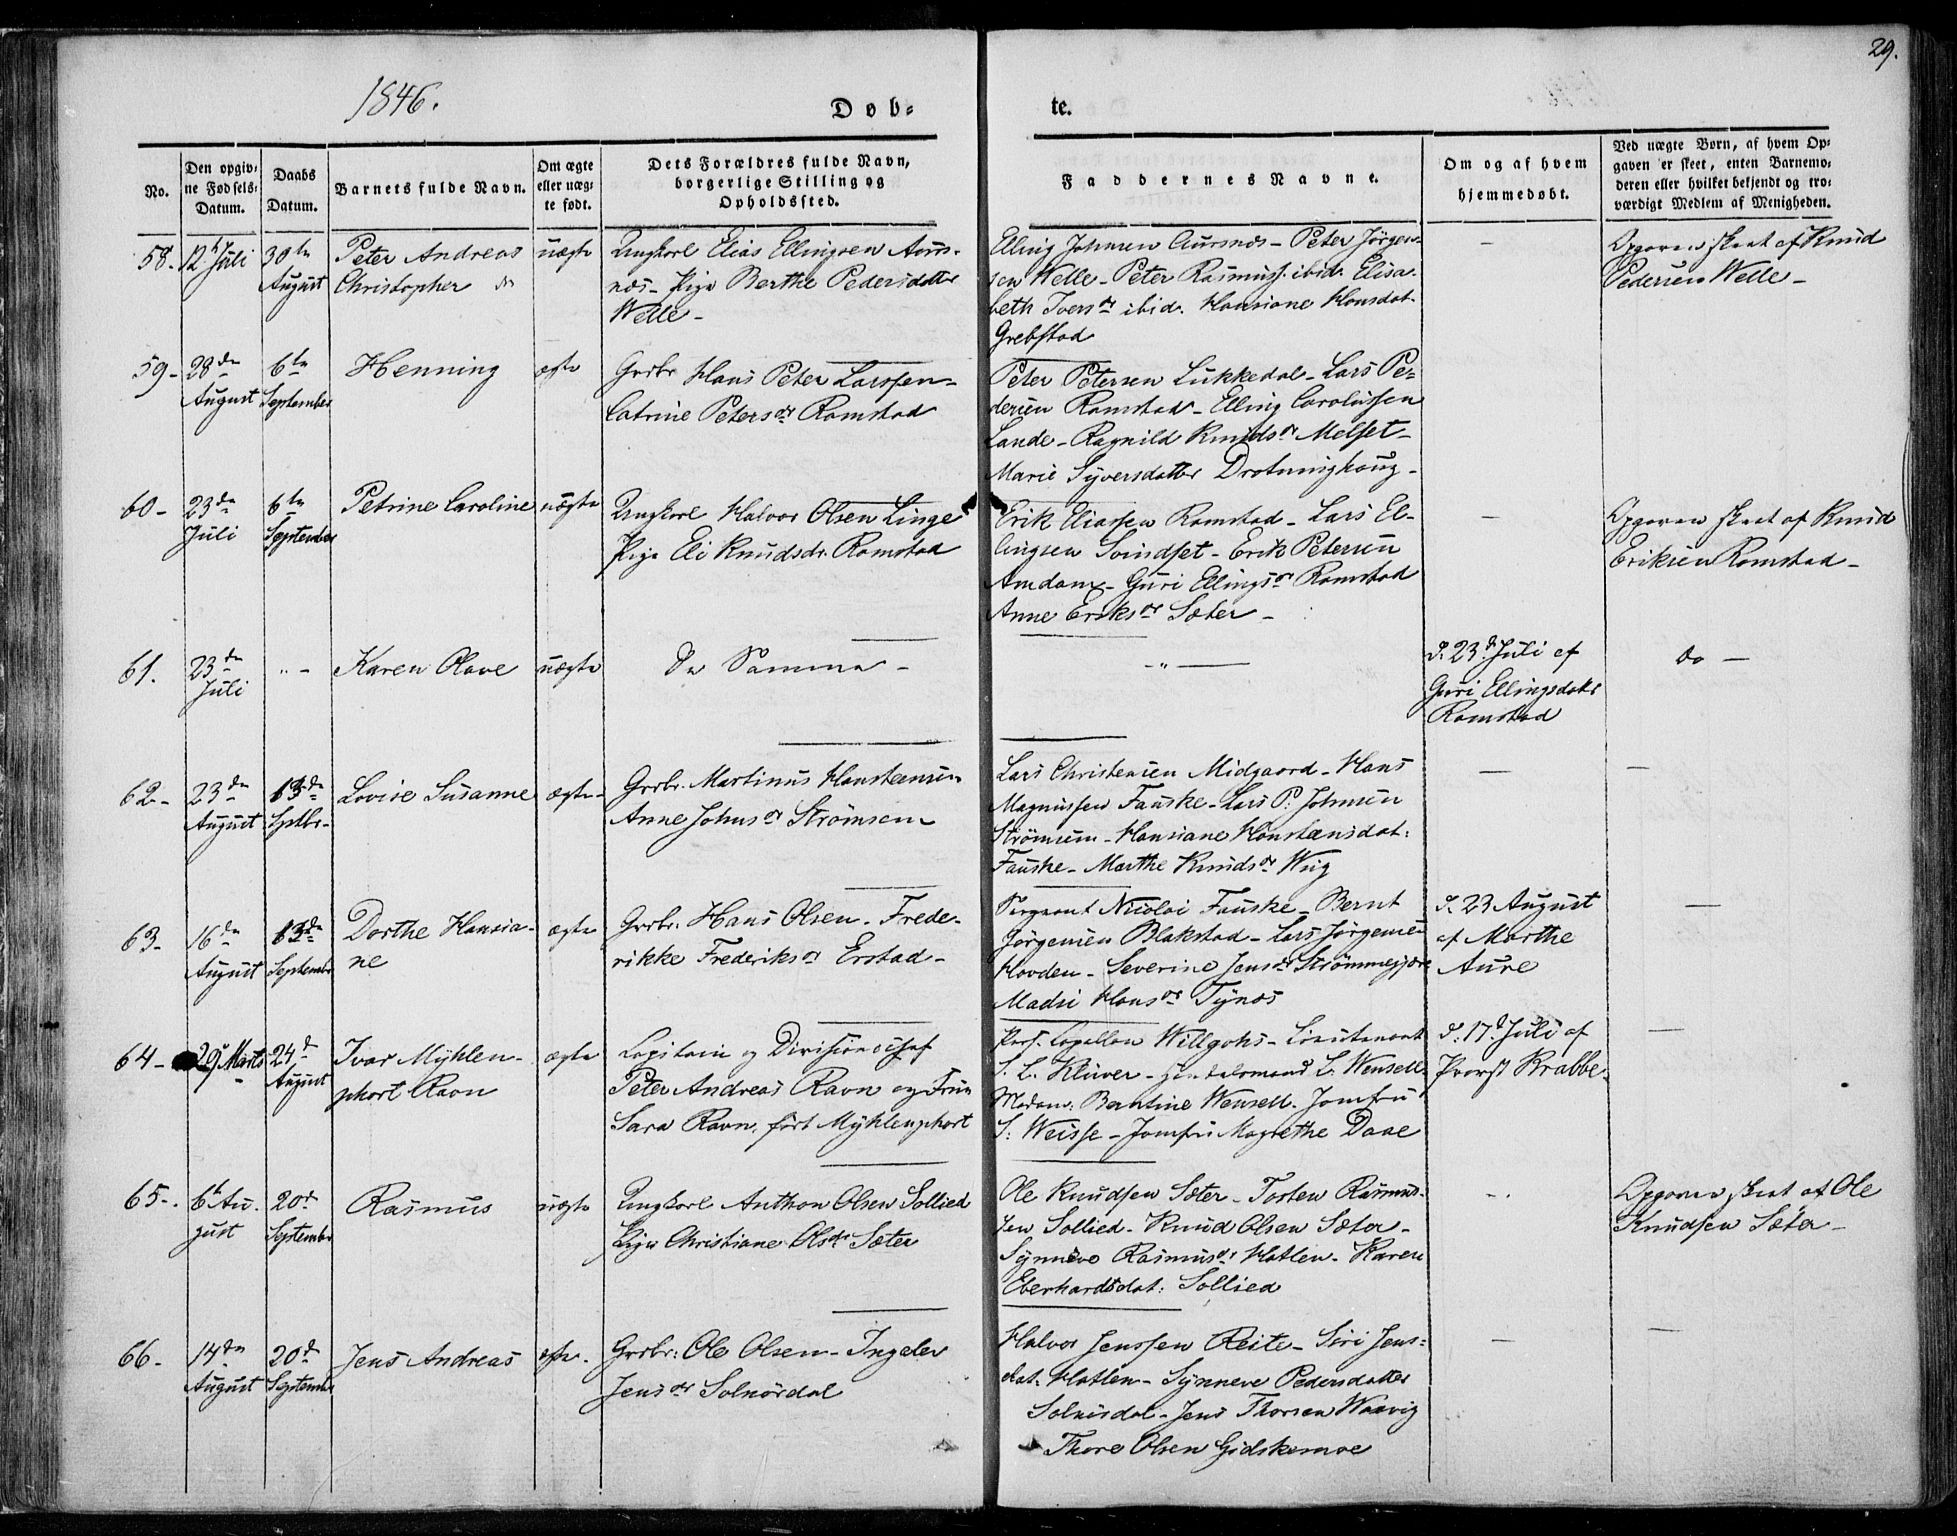 29.
1846.
Døb-
te.
No.
Den opgiv-
ne Fødsels-
Datum.
Daabs
Datum.
Barnets fulde Navn.
Om ægte
eller uæg-
te født.
Dets Forældres fulde Navn,
borgerlige Stilling og
Opholdssted.
Faddernes Navne.
Om og af hvem
hjemmedøbt.
Ved uægte Børn, af hvem Op-
gaven er skeet, enten Barnemo-
deren eller hvilket bekjendt og tro-
værdigt Medlem af Menigheden.
58- 12t Juli
30te
August
Peter Andreas
Christopher
uægte
Ungkarl Elias Ellingsen Aurs-
næs- Pige Berthe Pedersdatter
Welle-
Elling Johnsen Aursnæs- Peter Jörgen-
sen Welle- Peter Rasmuss. ibid. Elisa-
beth Ivers dr ibid. Hansiane Hansdat.
Grebstad
-
Opgaven skeet af Knud
Pedersen Welle-
59-
28de
August
6te
September
Henning
ægte
Grbr Hans Peter Larssen-
Catrine Peters dr Ramstad
Peter Petersen Lükkedal- Lars Pe-
dersen Ramstad- Elling Carolussen
Lande- Ragnild Knuds dr Melset-
Marie Syversdatter Drotninghaug-
60-
23de
Juli
6te
September
Petrine Caroline
uægte
Ungkarl Halvor Olsen Linge
Pige Eli Knudsdr. Ramstad
Erik Eliassen Ramstad- Lars El-
lingsen Svindset- Erik Petersen
Amdam- Guri Ellings dr Ramstad
Anne Eriks dr Sæter-
-
Opgaven skeet af Knud
Eriksen Ramstad-
61.
23de
Juli
"-
Karen Olave
uægte
De Samme-
-"-
d. 23d Juli af
Guri Ellingsdatr
Ramstad
do-
62-
23de
August
13de
Sptbr-
Lovise Susanne
ægte-
Grbr. Martinus Hanstensen
Anne Johns dr Strømsem
Lars Christensen Midgaard- Hans
Magnussen Fauske- Lars P. Johnsen
Strömsem- Hansiane Hanstensdat:
Fauske- Marthe Knuds dr Wiig
-
-
63-
16de
August
13de
September
Dorthe Hansia-
ne
ægte
Grbr. Hans Olsen- Frede-
rikke Frederiks dr Erstad-
Sergeant Nicolai Fauske- Bernt
Jörgensen Blakstad- Lars Jörgensen
Hovden- Severine Jens dr Strömmegjære
Madsi Hans dr Tynæs
d. 23 August
af Marthe
Aure
-
64-
29 Marts
24d
August
Ivar Mÿhlen-
phort Ravn
ægte
Capitain og Divisionschef
Peter Andreas Ravn og Frue
Sara Ravn, født Mÿhlenphort
Pers. Capellan Willgohs- Lieutenant
S. L. Klüver- Handelsmand L. Wensell-
Madam: Berntine Wensell. Jomfru
S: Weisse- Jomfru Magrethe Daae
d. 17d Juli af
Provst Krabbe-
-
65-
6t Au-
gust
20d
September
Rasmus
uægte
Ungkarl Anthon Olsen Sollied
Pige Christiane Olsdr Sæter
Ole Knudsen Sæter- Torsten Rasmus-
sen Sollied- Knud Olsen Sæter-
Synneve Rasmusdr Hatlen- Karen
Eberhardsdat: Sollied
-
Opgaven skeet af Ole
Knudsen Sæter-
66-
14de
August
20d
September
Jens Andreas
ægte-
Grbr: Ole Olsen- Ingelev
Jens dr Solnördal
Halvor Jenssen Reite- Siri Jens-
dat. Hatlen- Synneve Pedersdatter
Solnördal- Jens Thorsen Waavig
Thore Olsen Gidskemoe
-
-